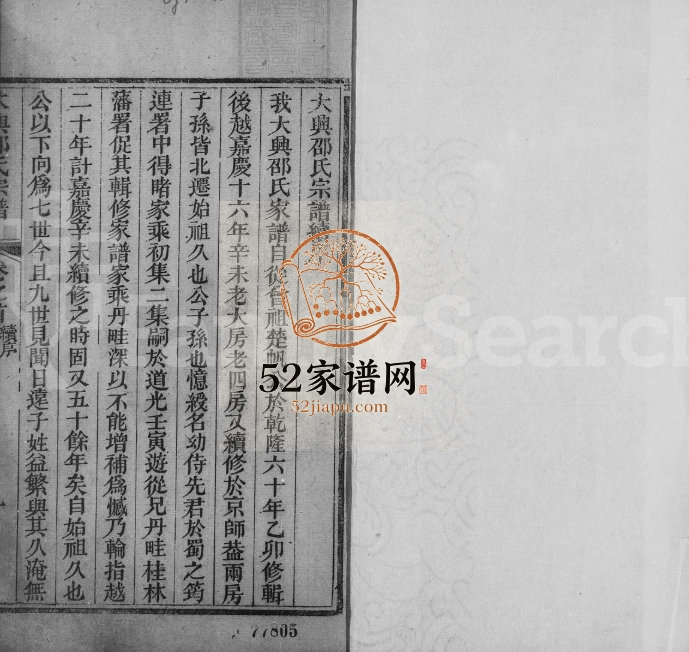 大興邵氏宗譜續
我大興邵氏家譜自從
祖楚帆
於乾隆六十年乙卯修輯
後越嘉慶十六年辛未老大房老四房又續修於京師葢兩房
子孫皆北遷始祖久也公子孫也憶綬名幼侍先君於蜀之筠
連署中得睹家乘初集二集嗣於道光壬寅遊從兄丹畦桂林
藩署促其輯修家譜家乘丹畦深以不能增補爲憾乃輪指越
二十年計嘉慶辛未續修之時固又五十餘年矣自始祖久也
公以下向爲七世今且九世見聞日遠子姓益繁與其久淹無
大興邵氏宗譜
續序
52家谱网
52jiapu.com
Search
77805